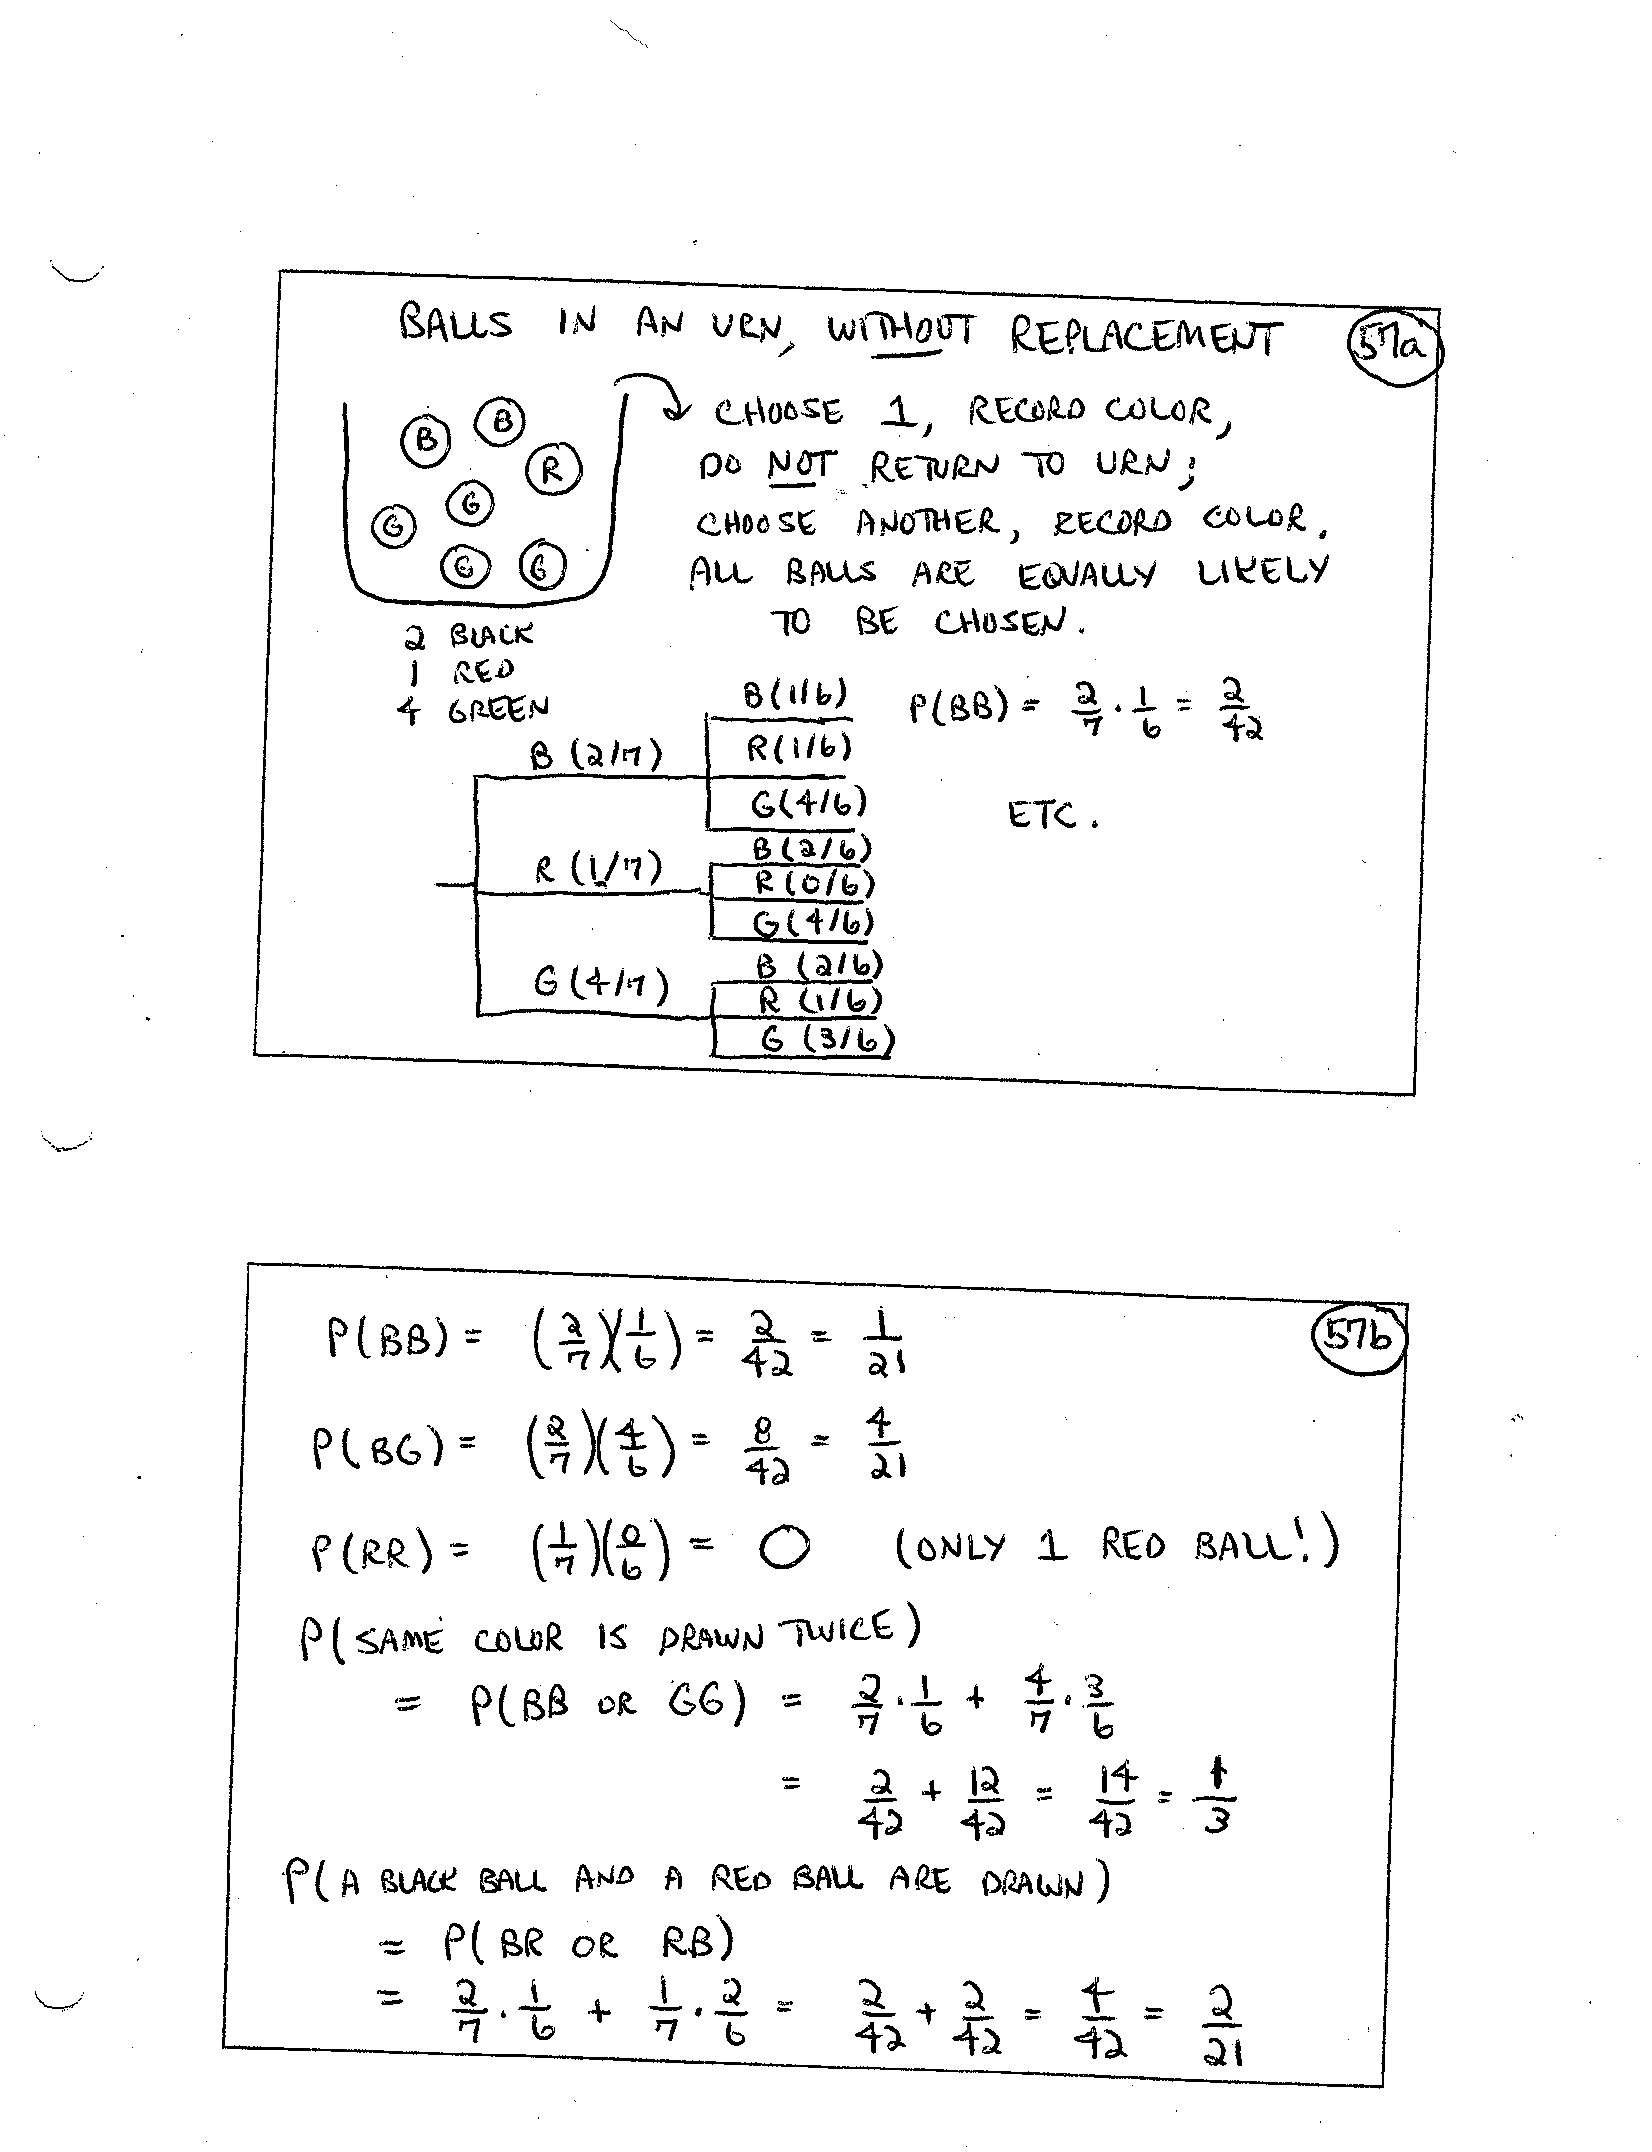 BALLS IN AN URN, WITHOUT REPLACEMENT 57a
B B R G G G G
CHOOSE 1, RECORD COLOR,
DO NOT RETURN TO URN;
CHOOSE ANOTHER, RECORD COLOR.
ALL BALLS ARE EQUALLY LIKELY
TO BE CHOSEN.
2 BLACK
1 RED
4 GREEN
P(BB) = 2/7 · 1/6 = 2/42
ETC.
B (2/7)
B (1/6)
R (1/6)
G (4/6)
R (1/7)
B (2/6)
R (0/6)
G (4/6)
G (4/7)
B (2/6)
R (1/6)
G (3/6)
57b
P(BB) = (2/7)(1/6) = 2/42 = 1/21
P(BG) = (2/7)(4/6) = 8/42 = 4/21
P(RR) = (1/7)(0/6) = 0 (ONLY 1 RED BALL!)
P(SAME COLOR IS DRAWN TWICE)
= P(BB OR GG) = 2/7 · 1/6 + 4/7 · 3/6
= 2/42 + 12/42 = 14/42 = 1/3
P(A BLACK BALL AND A RED BALL ARE DRAWN)
= P(BR OR RB)
= 2/7 · 1/6 + 1/7 · 2/6 = 2/42 + 2/42 = 4/42 = 2/21